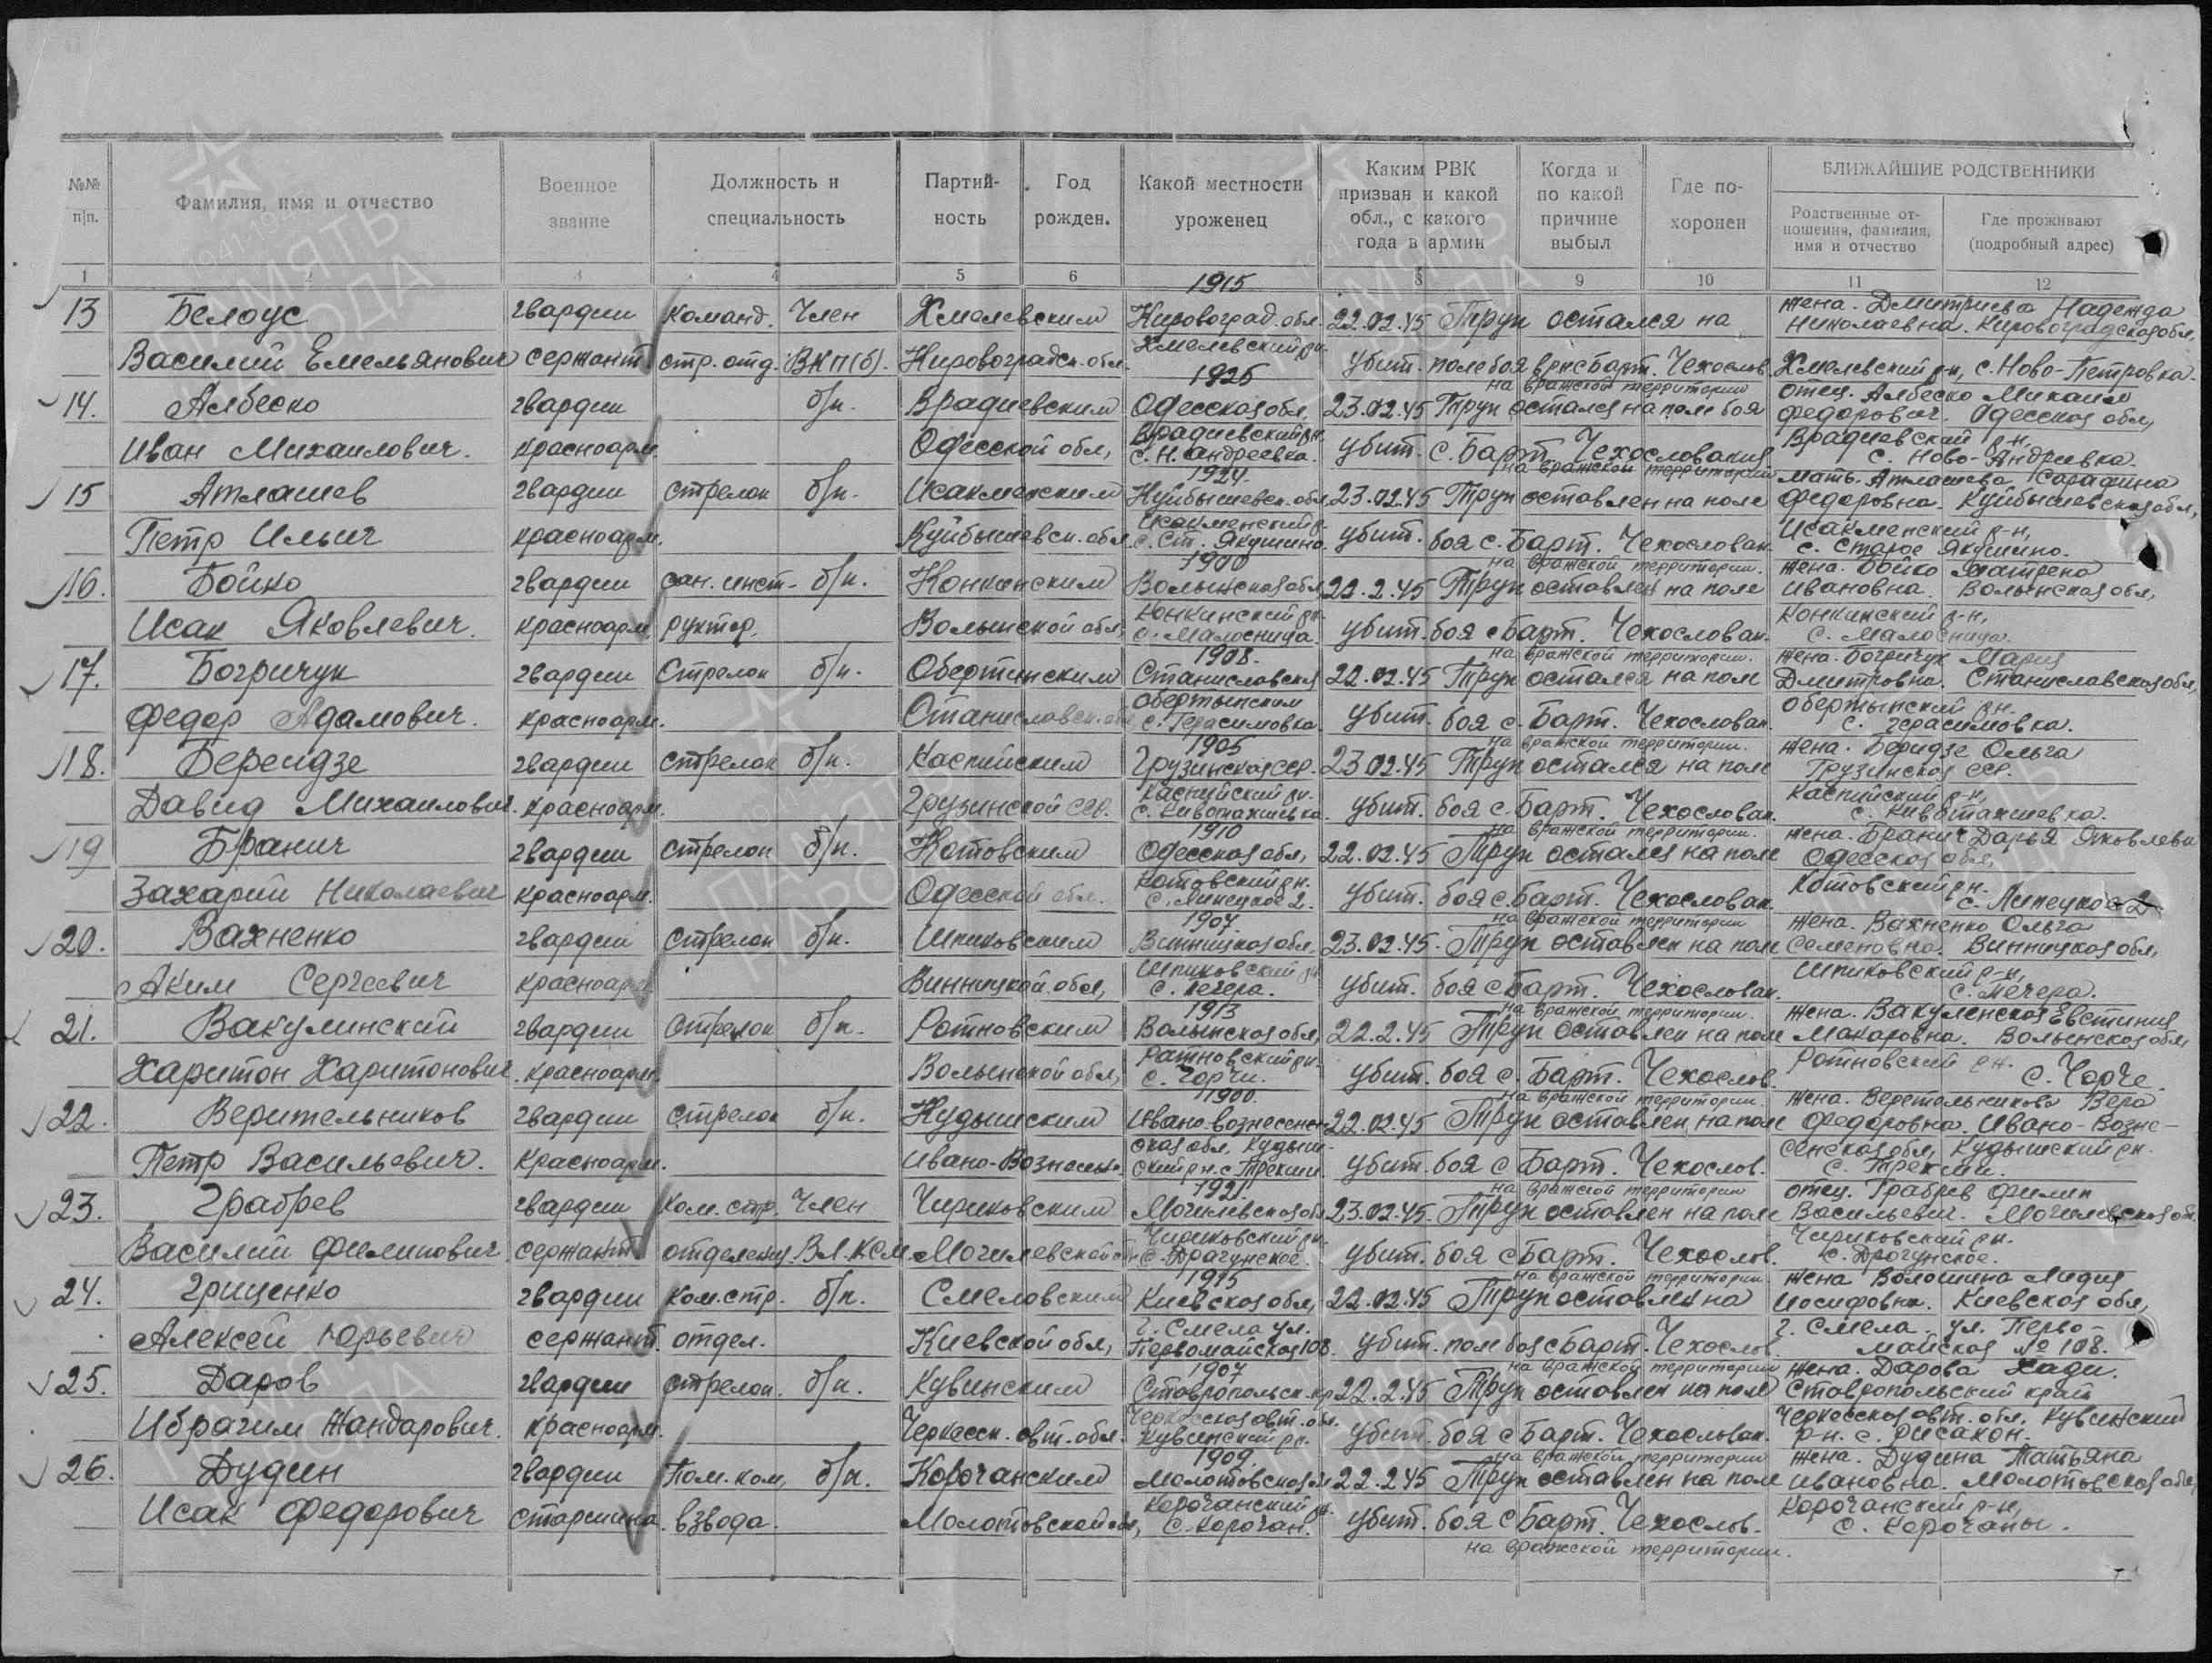 №№ п|п. Фамилия, имя и отчество Военное звание Должность и специальность Партийность Год рожден. Какой местности уроженец Каким РВК призван и какой обл., с какого года в армии Когда и по какой причине выбыл Где похоронен БЛИЖАЙШИЕ РОДСТВЕННИКИ
Родственные отношения, фамилия, имя и отчество Где проживают (подробный адрес)
1 2 3 4 5 6 8 9 10 11 12
1915
13 Белоус гвардии команд. Член Хмелевским Кировоград. обл. 22.02.45 Труп остался на жена. Дмитриева Надежда
Николаевна. Кировоградская обл,
Василий Емельянович сержант стр. отд. ВКП(б). Кировоградск. обл. Хмелевский рн. убит. поле боя в рнс Барт. Чехослов. Хмелевский р-н, с. Ново-Петровка.
1925 на вражской территории
14. Албеско гвардии б/п. Врадиевским Одесская обл, 23.02.45 Труп остался на поле боя отец. Албеско Михаил
Федорович. Одесская обл,
Иван Михаилович. красноарм. Одесской обл, Врадиевский рн. с. Н. Андреевка. убит. с. Барт. Чехословакия Врадиевский р-н,
с. Ново-Андреевка.
1924. на вражской территории
15 Атлашев гвардии стрелок б/п. Исакменским Куйбышевск. обл, 23.02.45 Труп оставлен на поле мать. Атлашева Сарафина
Федоровна. Куйбышевская обл,
Петр Ильич красноарм. Куйбышевск. обл. Исакменский р- с. Ст. Якушино. убит. боя с. Барт. Чехословак. Исакменский р-н,
с. Старое Якушино.
1900 на вражской территории.
16. Бойко гвардии сан. инст- б/п. Конкинским Волынская обл, 22.2.45 Труп оставлен на поле жена. Бойко Матрена
Ивановна. Волынская обл,
Исак Яковлевич. красноарм. руктор. Волынской обл, Конкинский рн. с. Малосница. убит. боя с Барт. Чехословак. Конкинский р-н,
с. Малосница.
1908. на вражской территории.
17. Богричук гвардии Стрелок б/п. Обертинским Станиславская 22.02.45 Труп остался на поле жена. Богричук Мария
Дмитровна. Станиславская обл,
Федор Адамович. красноарм. Станиславск. обл Обертынским с. Герасимовка убит. боя с. Барт. Чехословак. Обертынский рн.
с. Герасимовка.
1905 на вражской территории.
18. Береидзе гвардии стрелок б/п. Каспийским Грузинская ССР. 23.02.45 Труп остался на поле жена. Беридзе Ольга
Грузинская ССР.
Давид Михаилович. красноарм. Грузинской ССР. Каспийский рн. убит. боя с. Барт. Чехословак. Каспийский р-н,
1910 на вражской территории.
19 Бранич гвардии стрелок б/п. Котовским Одесская обл, 22.02.45 Труп остался на поле жена. Бранич Дарья Яковлевн
Одесская обл,
Захарий Николаевич красноарм. Одесской обл. Котовский рн. с. Липецкое 2. убит. боя с. Барт. Чехословак. Котовский рн.
с. Липецкое 2
1907. на вражской территории
20. Вахненко гвардии стрелок б/п. Шпиковским Винницкая обл. 23.02.45. Труп оставлен на поле жена. Вахненко Ольга
Семеновна. Винницкая обл,
Аким Сергеевич красноарм Винницкой обл, Шпиковский рн с. Печера. убит. боя с Барт. Чехословак. Шпиковский р-н,
с. Печера.
1913 на вражской территории.
21. Вакулинский гвардии Стрелок б/п. Ротновским Волынская обл, 22.2.45 Труп оставлен на поле жена. Вакуленская Евстиния
Макаровна. Волынская обл,
Харитон Харитонович. красноарм. Волынской обл, Ратновский рн. с. Горчи. убит. боя с. Барт. Чехослов. Ротновский рн.
с. Чорче.
1900. на вражской территории.
22. Верительников гвардии стрелок б/п. Кудышским Ивано-вознесен- 22.02.45 Труп оставлен на поле жена. Веретельникова Вера
Федоровна. Ивано-Возне-
Петр Васильевич. Красноарм. Ивано-Вознесен. ская обл, Кудыш- ский рн. с. Трекши. убит. боя с Барт. Чехослов. сенская обл, Кудышский рн.
с. Трекши.
1921. на вражской территории
23. Грабрев гвардии ком. стр. Член Чириковским Могилевская обл 23.02.45. Труп оставлен на поле отец. Грабрев Филип
Васильевич. Могилевская об.
Василий Филипович сержант отделения. ВЛКСМ Могилевской Чириковский рн. с. Драгунское. убит. боя с Барт. Чехослов. Чириковский рн.
с. Драгунское.
1915 на вражской территории.
24. Гриценко гвардии ком. стр. б/п. Смеловским Киевская обл, 22.02.45 Труп оставлен на жена Волошина Лидия
Иосифовна. Киевская обл,
Алексей Юрьевич сержант. отдел. Киевской обл, г. Смела ул. Первомайская 108. убит. поле боя с Барт. Чехослов. г. Смела. ул. Перво-
майская № 108.
1907 на вражской территории
25. Даров гвардии стрелок. б/п. Кувинским Ставропольск. кр 22.2.45 Труп оставлен на поле жена. Дарова Хади.
Ставропольский край
Ибрагим Жандарович. красноарм. Черкесск. авт. обл. Черкесская авт. обл. Кувинский рн. убит. боя с Барт. Чехословак. Черкесская авт. обл. Кувинский
рн. с.
1909. на вражской территории
26. Дудин гвардии Пом. ком, б/п. Корочанским Молотовская обл 22.2.45 Труп оставлен на поле жена. Дудина Татьяна
Ивановна. Молотовская обл,
Исак Федорович старшина взвода. Молотовской обл, Корочанский рн. с. Корочан. убит. боя с Барт. Чехослов. Корочанский р-н,
с. Корочаны.
на вражской территории.
1941-1945
ПАМЯТЬ
НАРОДА